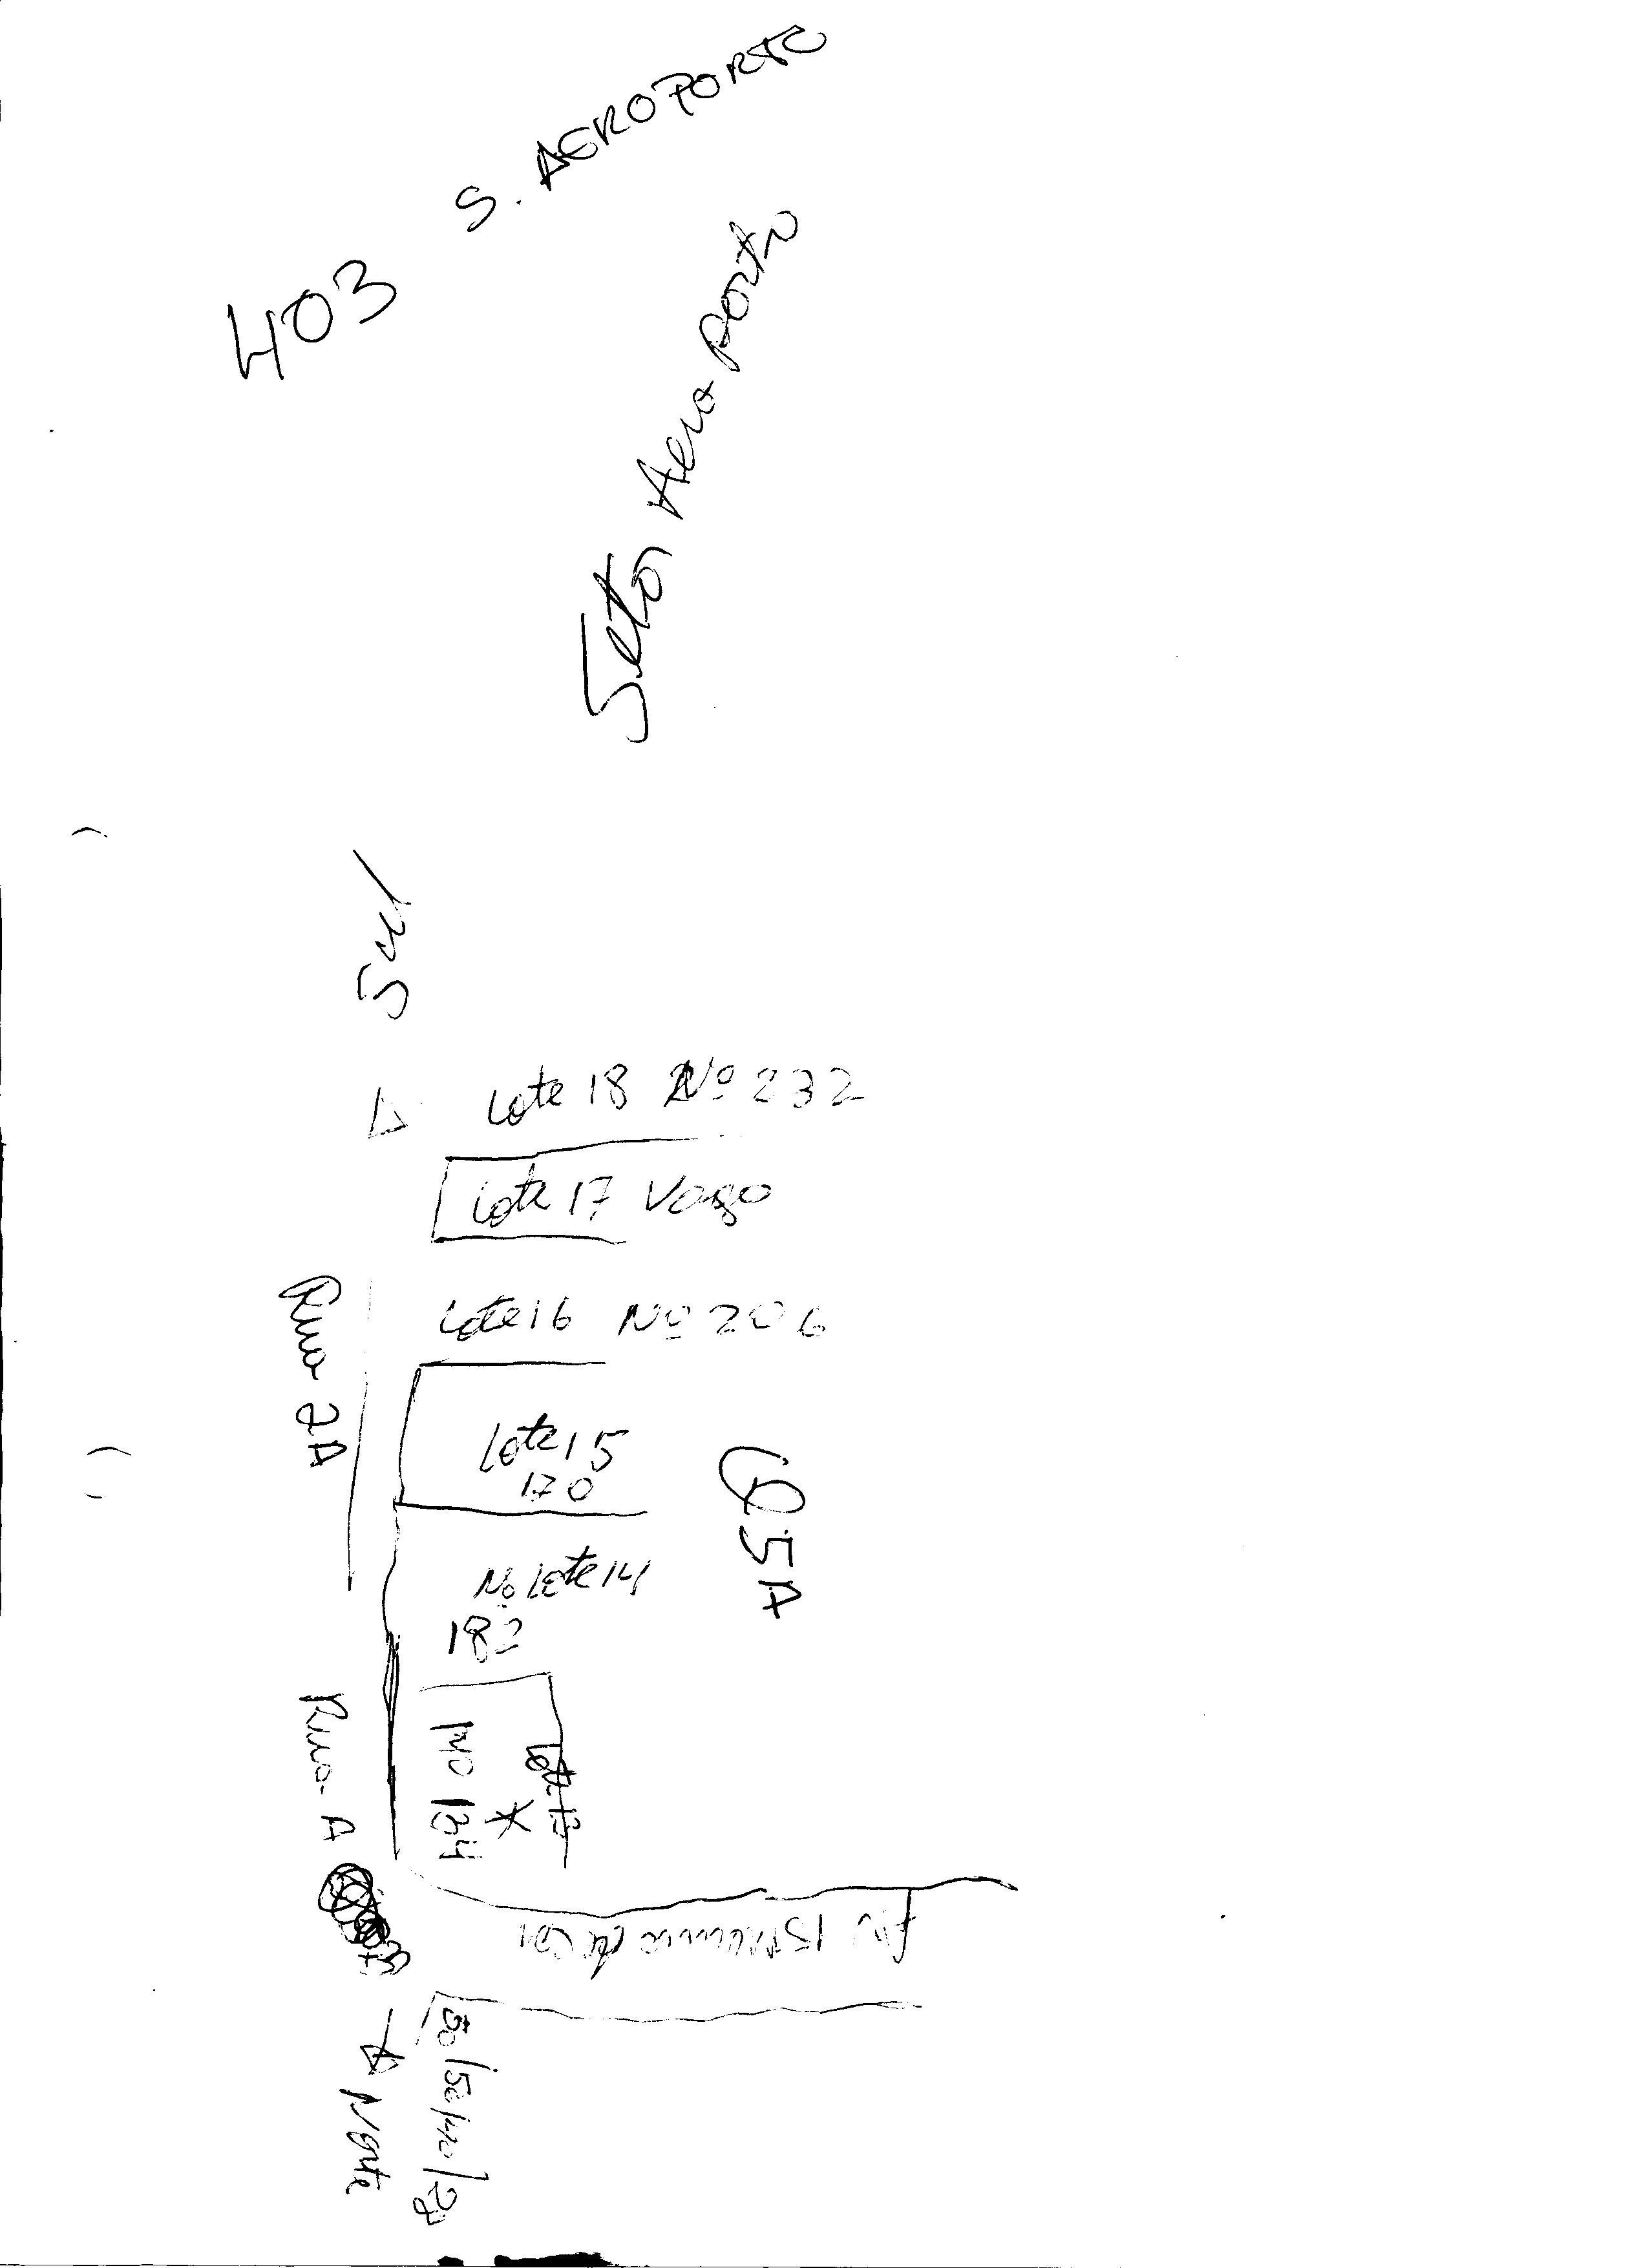 S. AEROPORTO
403
Setor Aeroporto
Sul
Lote 18 Nº 232
Lote 17 Vago
Lote 16 Nº 206
Rua 2A
Lote 15
170
Q 5A
Nº Lote 14
182
Lote 13
Nº 134
Rua A
Av.
Norte